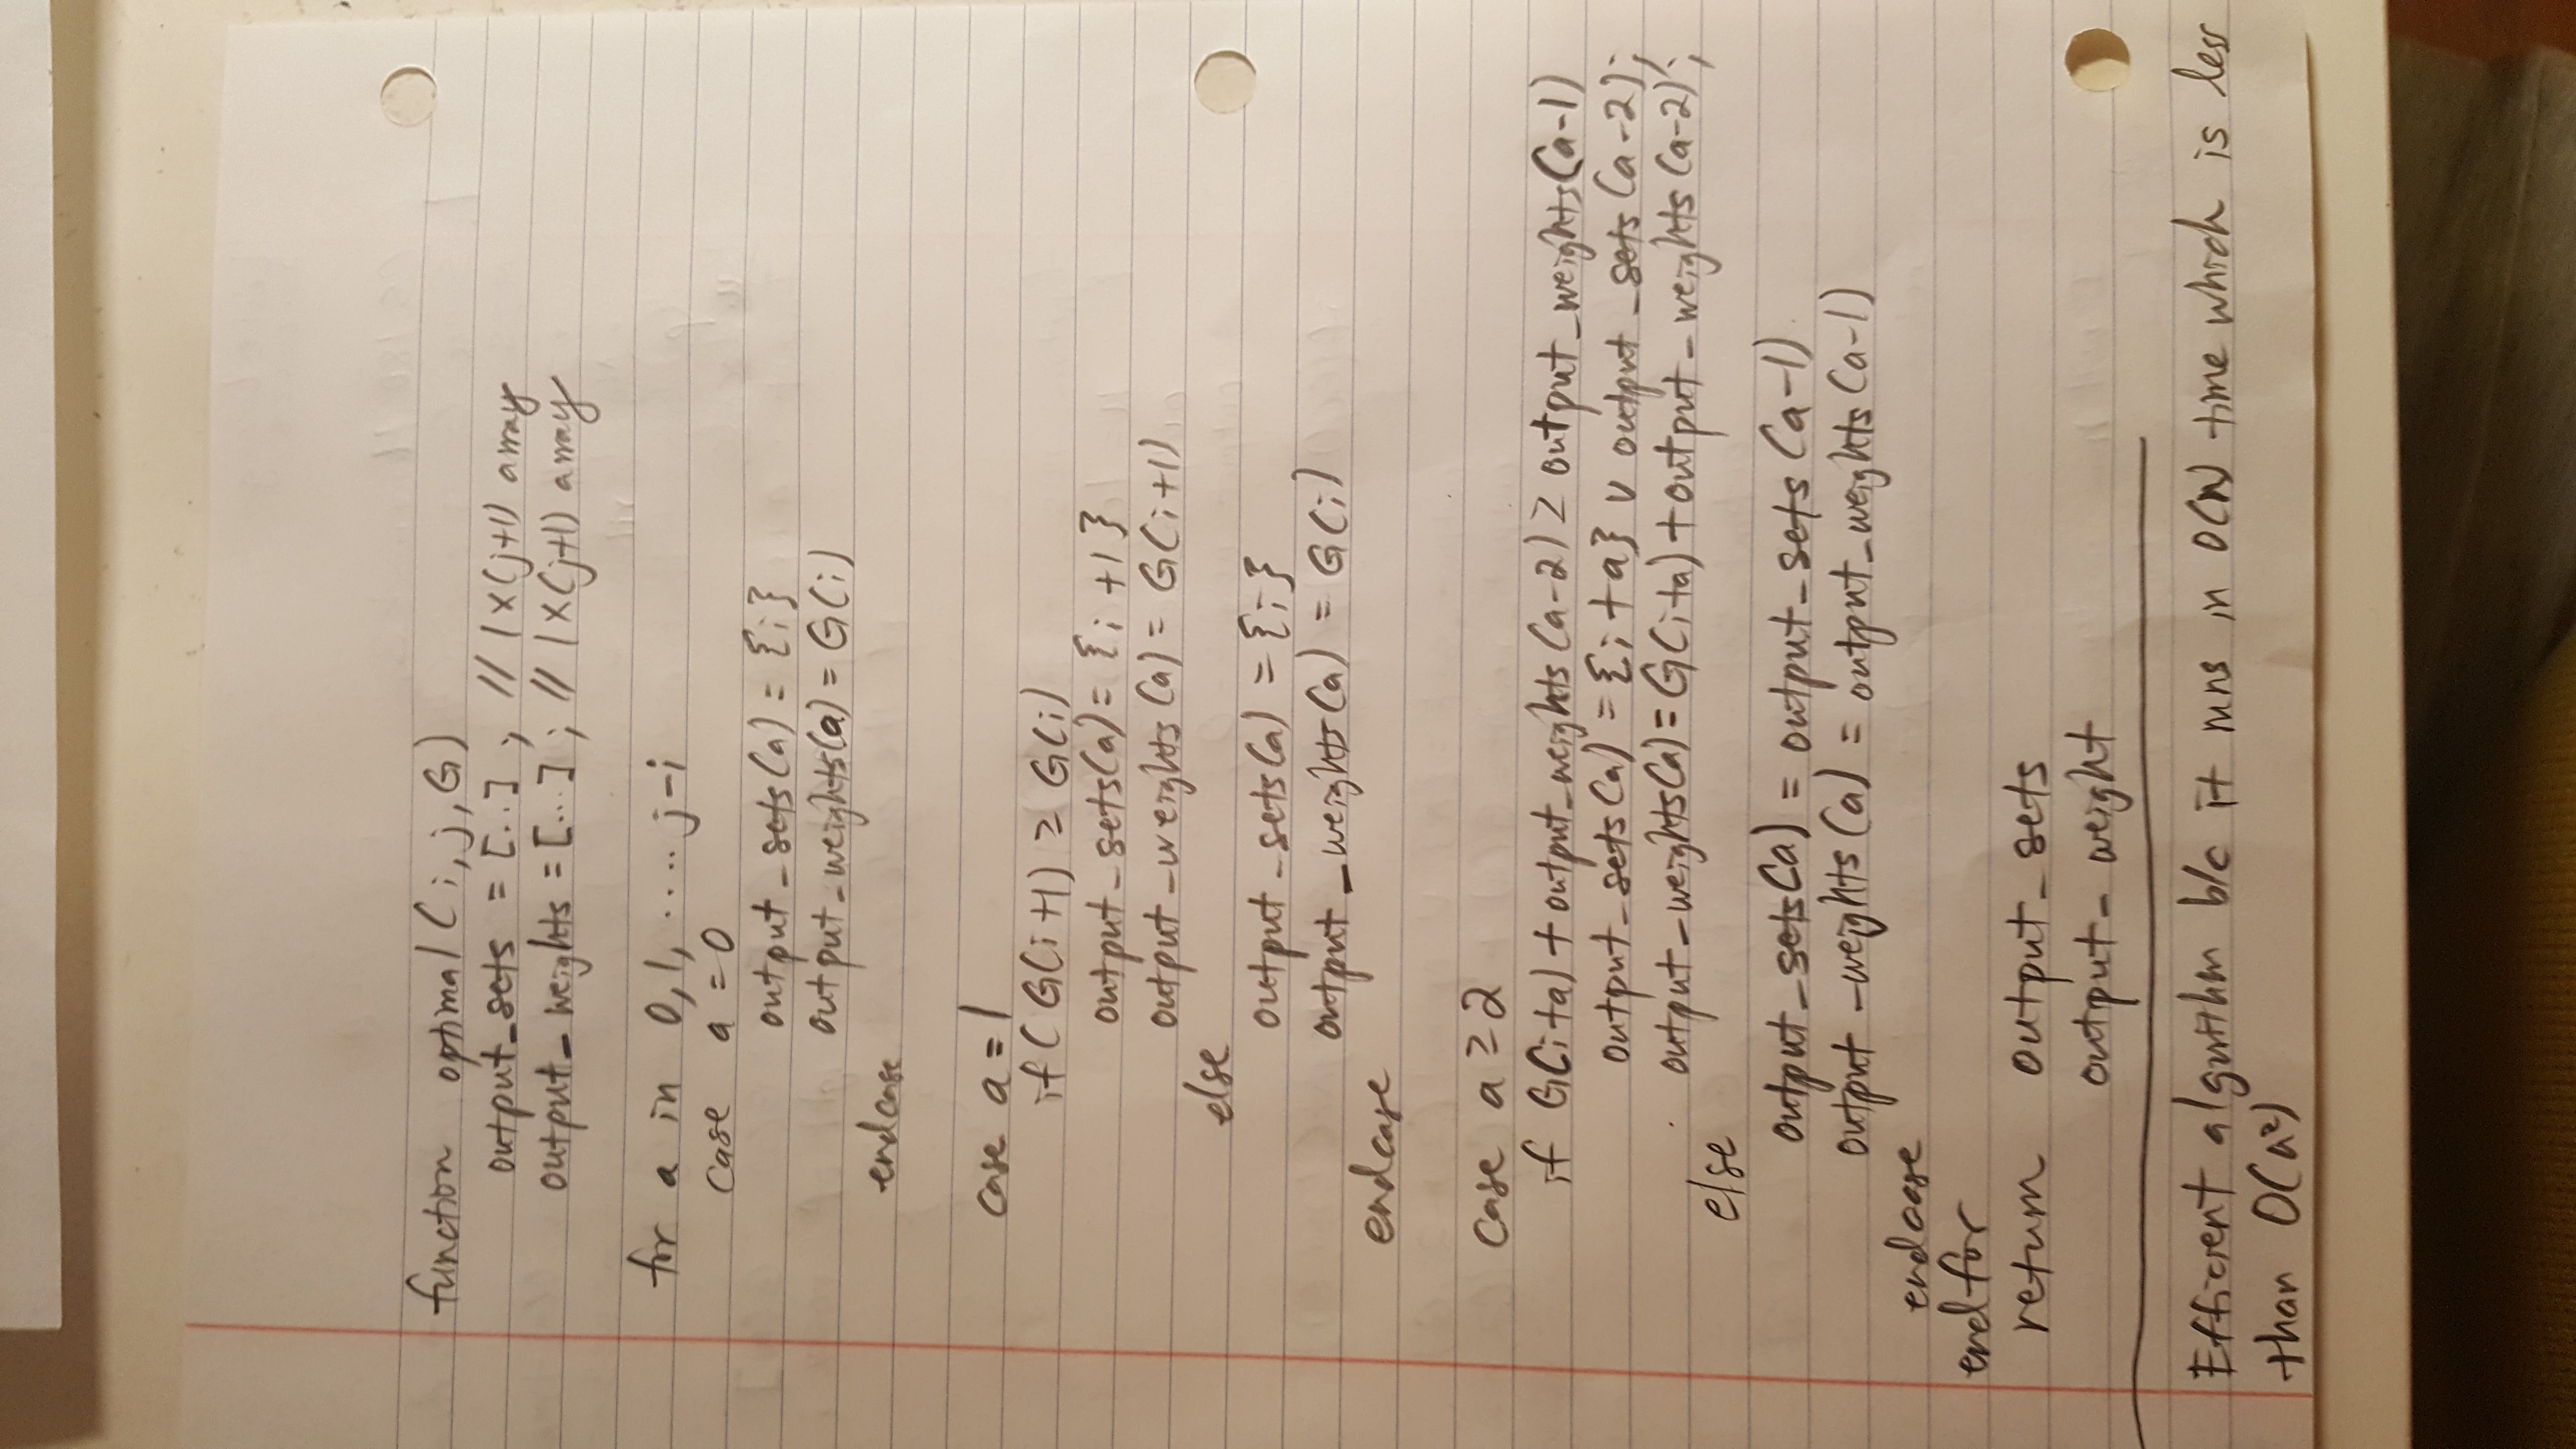 function optimal (i, j, G)
output_sets = [..] ; // 1x(j+1) array
output_weights = [...] ; // 1x(j+1) array
for a in 0,1, .... j-i
case a = 0
output_sets(a) = {i}
output_weights(a) = G(i)
endcase
case a = 1
if ( G(i+1) ≥ G(i)
output_sets(a) = {i+1}
output_weights (a) = G(i+1)
else
output_sets(a) = {i}
output_weights (a) = G(i)
endcase
case a ≥ 2
if G(i+a) + output_weights (a-2) ≥ output_weights(a-1)
output_sets (a) = {i+a} ∪ output_sets (a-2);
output_weights(a) = G(i+a) + output_weights (a-2);
else
output_sets(a) = output_sets (a-1)
output_weights (a) = output_weights (a-1)
endcase
endfor
return output_sets
output_weight
Efficient algorithm b/c it runs in O(n) time which is less
than O(n²)